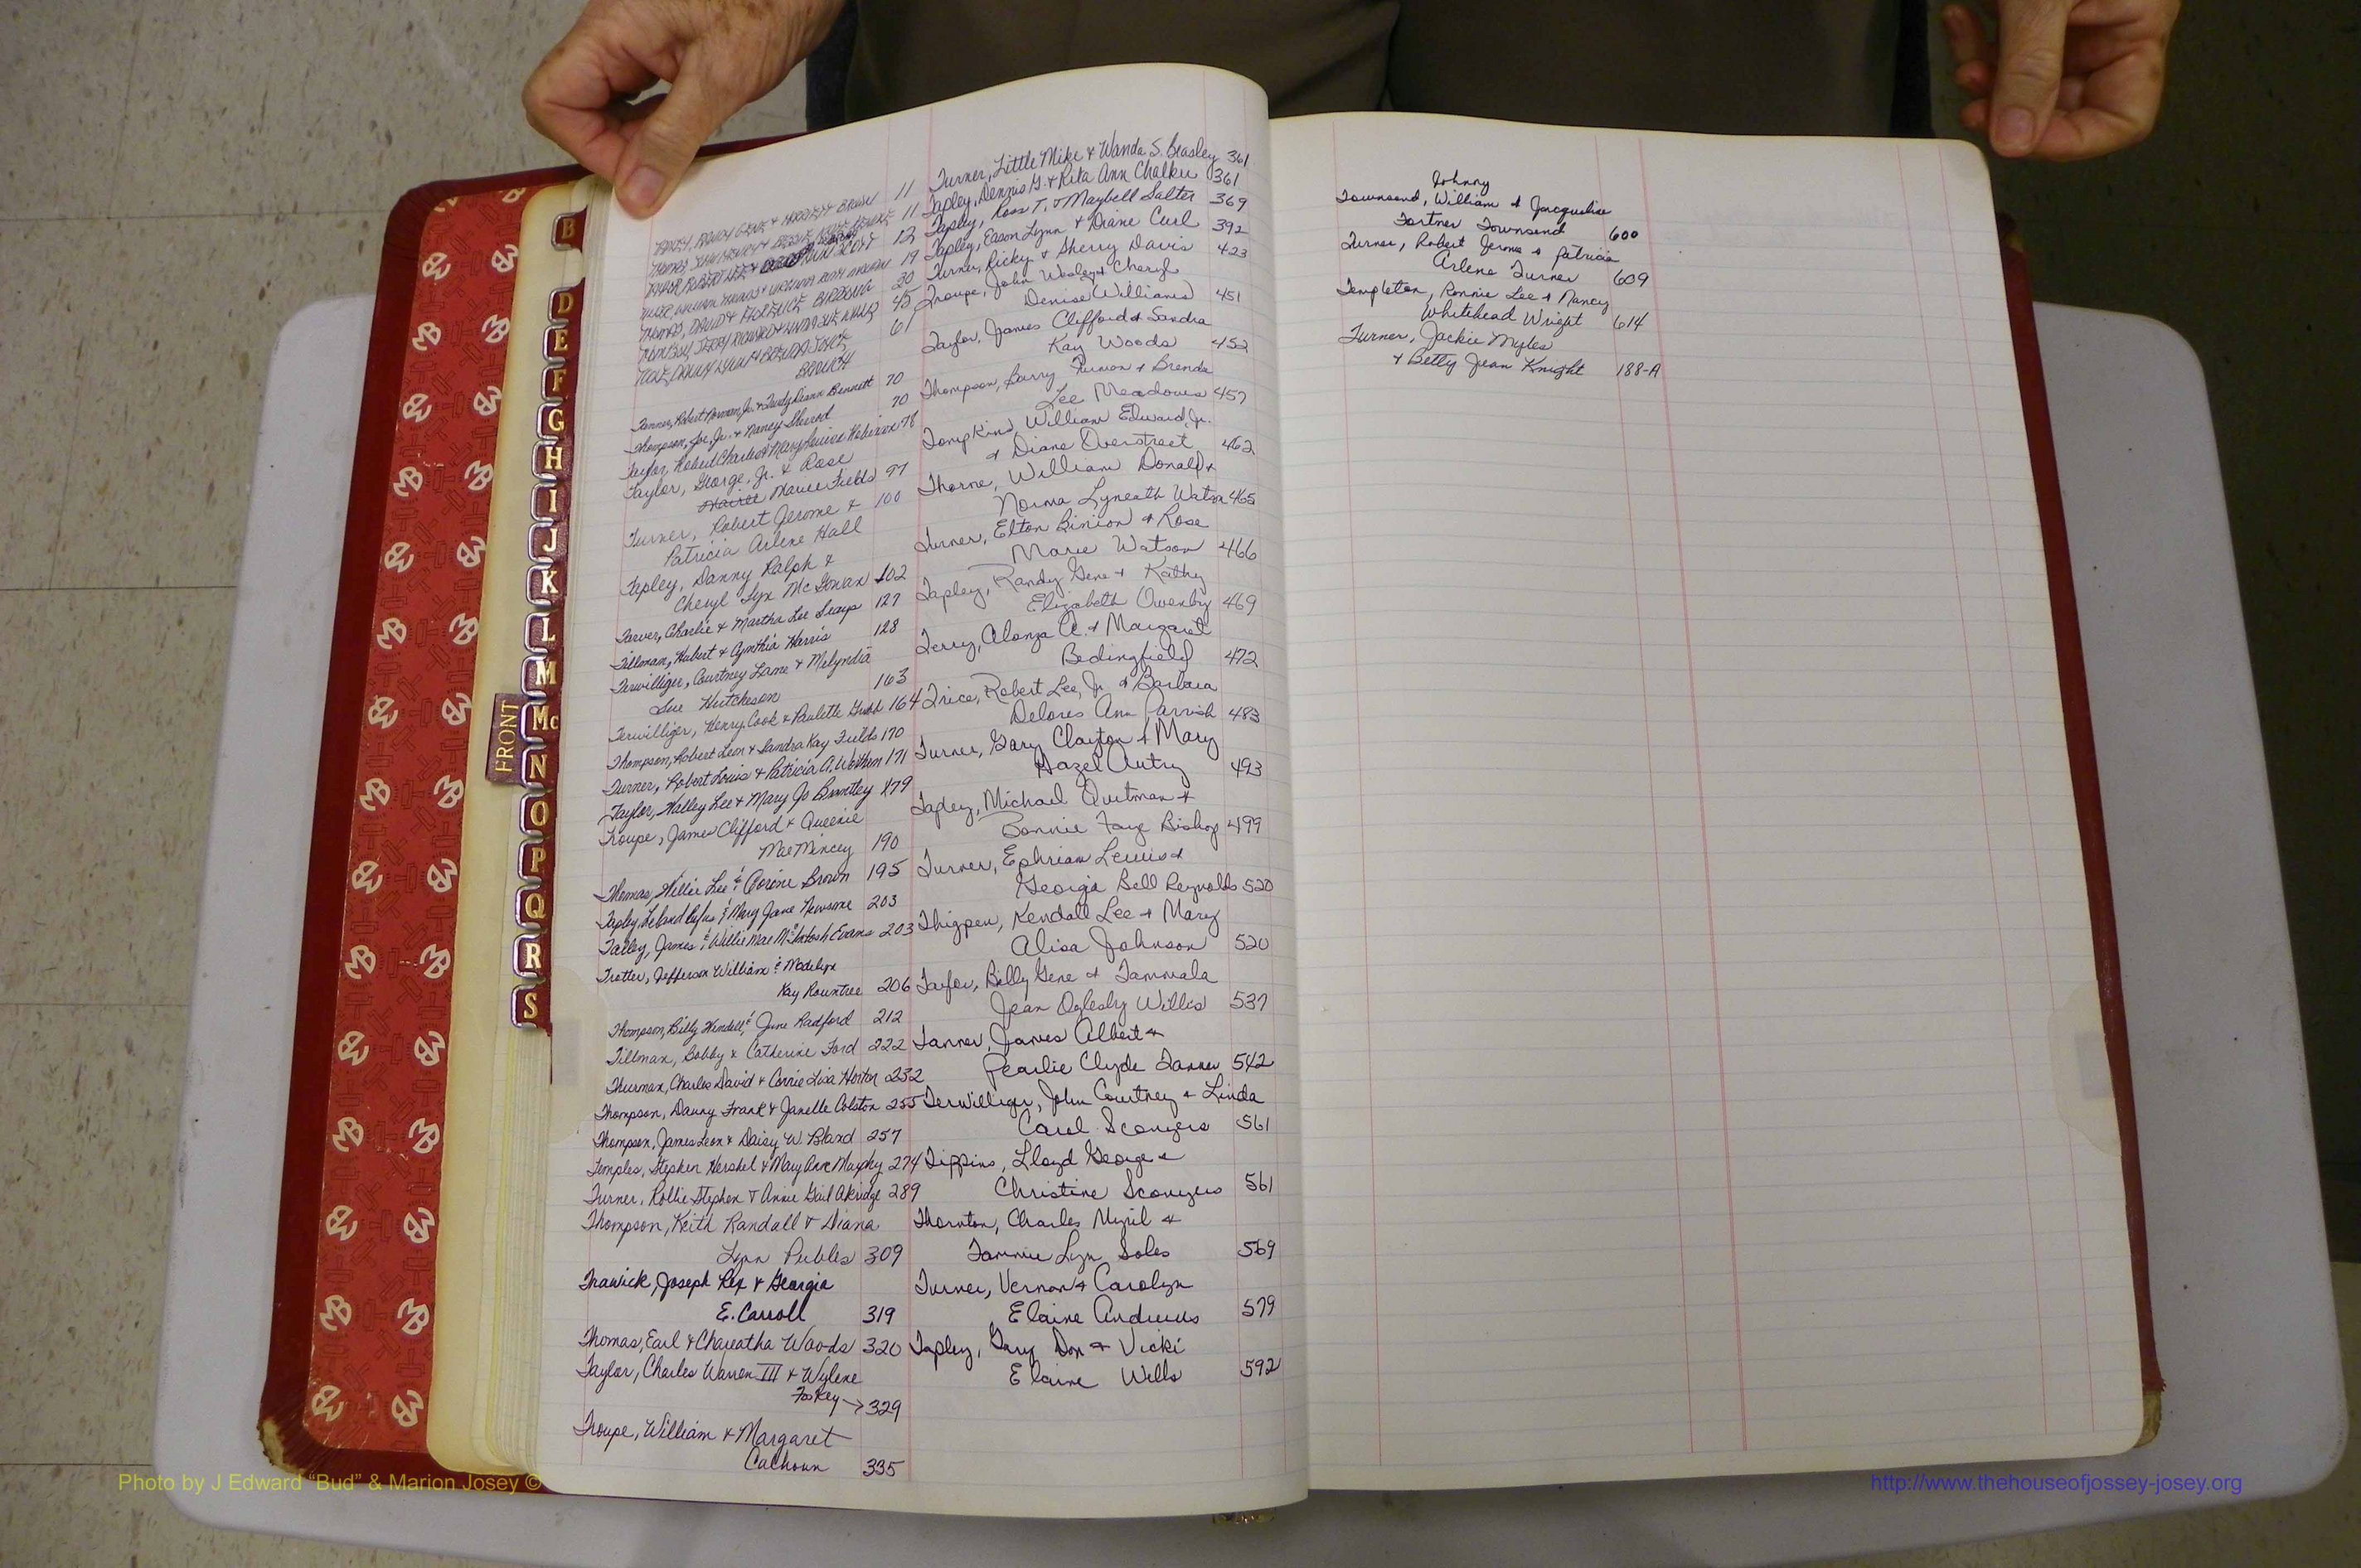 B
D
E
F
G
H
I
J
K
L
M
Mc
N
O
P
Q
R
S
FRONT
11
11
12
19
THOMAS, DAVID & FLORENCE 30
45
61
BRANCH
Tanner, Robert Norman, Jr. & Bennett 70
Thompson, Joe, Jr. & Nancy 70
Taylor, Robert Charles & Mary 78
Taylor, George, Jr. & Rose
Marie Fields 97
Turner, Robert Jerome & 100
Patricia Arlene Hall
Tapley, Danny Ralph &
Cheryl Lyn McGowan 102
Tarver, Charlie & Martha Lee 127
Tillman, Hubert & Cynthia Harris 128
Terwilliger, Courtney Lame & Melyndia
Sue Hutcheson 163
Terwilliger, Henry Cook & Paulette 164
Thompson, Robert Leon & Sandra Kay Fields 170
Turner, Robert Louis & Patricia A. 171
Taylor, Halley Lee & Mary Jo Brantley 179
Troupe, James Clifford & Queenie
Mae Mincey 190
Thomas, Willie Lee & Corine Brown 195
Tapley, Leland Rufus & Mary Jane Newsome 203
Talley, James & Willie Mae McIntosh Evans 203
Trotter, Jefferson William & Madelyn
Kay Rountree 206
Thompson, Billy Wendell & June Radford 212
Tillman, Bobby & Catherine Ford 222
Thurman, Charles David & Connie Lisa Horton 232
Thompson, Danny Frank & Janelle Colston 255
Thompson, James Leon & Daisy W. Bland 257
Temples, Stephen Hershel & Mary Ann Murphy 274
Turner, Rollie Stephen & Annie Gail Akridge 289
Thompson, Keith Randall & Diana
Lynn Peebles 309
Trawick, Joseph Rex & Georgia
E. Carroll 319
Thomas, Earl & Woods 320
Taylor, Charles Warren III & Wylene
Foskey → 329
Troupe, William & Margaret
Calhoun 335
Turner, Little Mike & Wanda S. Beasley 361
Tapley, Dennis G. & Rita Ann Chalker 361
Tapley, Ross T. & Maybell Salter 369
Tapley, Eason Lynn & Diane Curl 392
Turner, Ricky & Sherry Davis 423
Troupe, John Wesley & Cheryl
Denise Williams 451
Taylor, James Clifford & Sandra
Kay Woods 452
Thompson, Barry Furman & Brenda
Lee Meadows 457
Tompkins, William Edward, Jr.
& Diane Overstreet 462
Thorne, William Donald &
Norma Lyneath Watson 465
Turner, Elton Binion & Rose
Marie Watson 466
Tapley, Randy Gene & Kathy
Elizabeth Owenby 469
Terry, Alonza A. & Margaret
Bedingfield 472
Trice, Robert Lee, Jr. & Barbara
Delores Ann Parrish 483
Turner, Gary Clayton & Mary
Hazel Autry 493
Tapley, Michael Quitman &
Bonnie Faye Bishop 499
Turner, Ephriam Lewis &
Georgia Bell Reynolds 520
Thigpen, Kendall Lee & Mary
Alisa Johnson 520
Taylor, Billy Gene & Tammala
Jean Oglesby Willis 537
Tanner, James Albert &
Pearlie Clyde Tanner 542
Terwilliger, John Courtney & Linda
Carol Sconyers 561
Tippins, Lloyd George &
Christine Sconyers 561
Thornton, Charles Myril &
Tammie Lyn Soles 569
Turner, Vernon & Carolyn
Elaine Andrews 579
Tapley, Gary Don & Vicki
Elaine Wills 592
Johnny
Townsend, William & Jacqueline
Fortner Townsend 600
Turner, Robert Jerome & Patricia
Arlene Turner 609
Templeton, Ronnie Lee & Nancy
Whitehead Wright 614
Turner, Jackie Myles
& Betty Jean Knight 188-A
Photo by J Edward “Bud” & Marion Josey ©
http://www.thehouseofjossey-josey.org